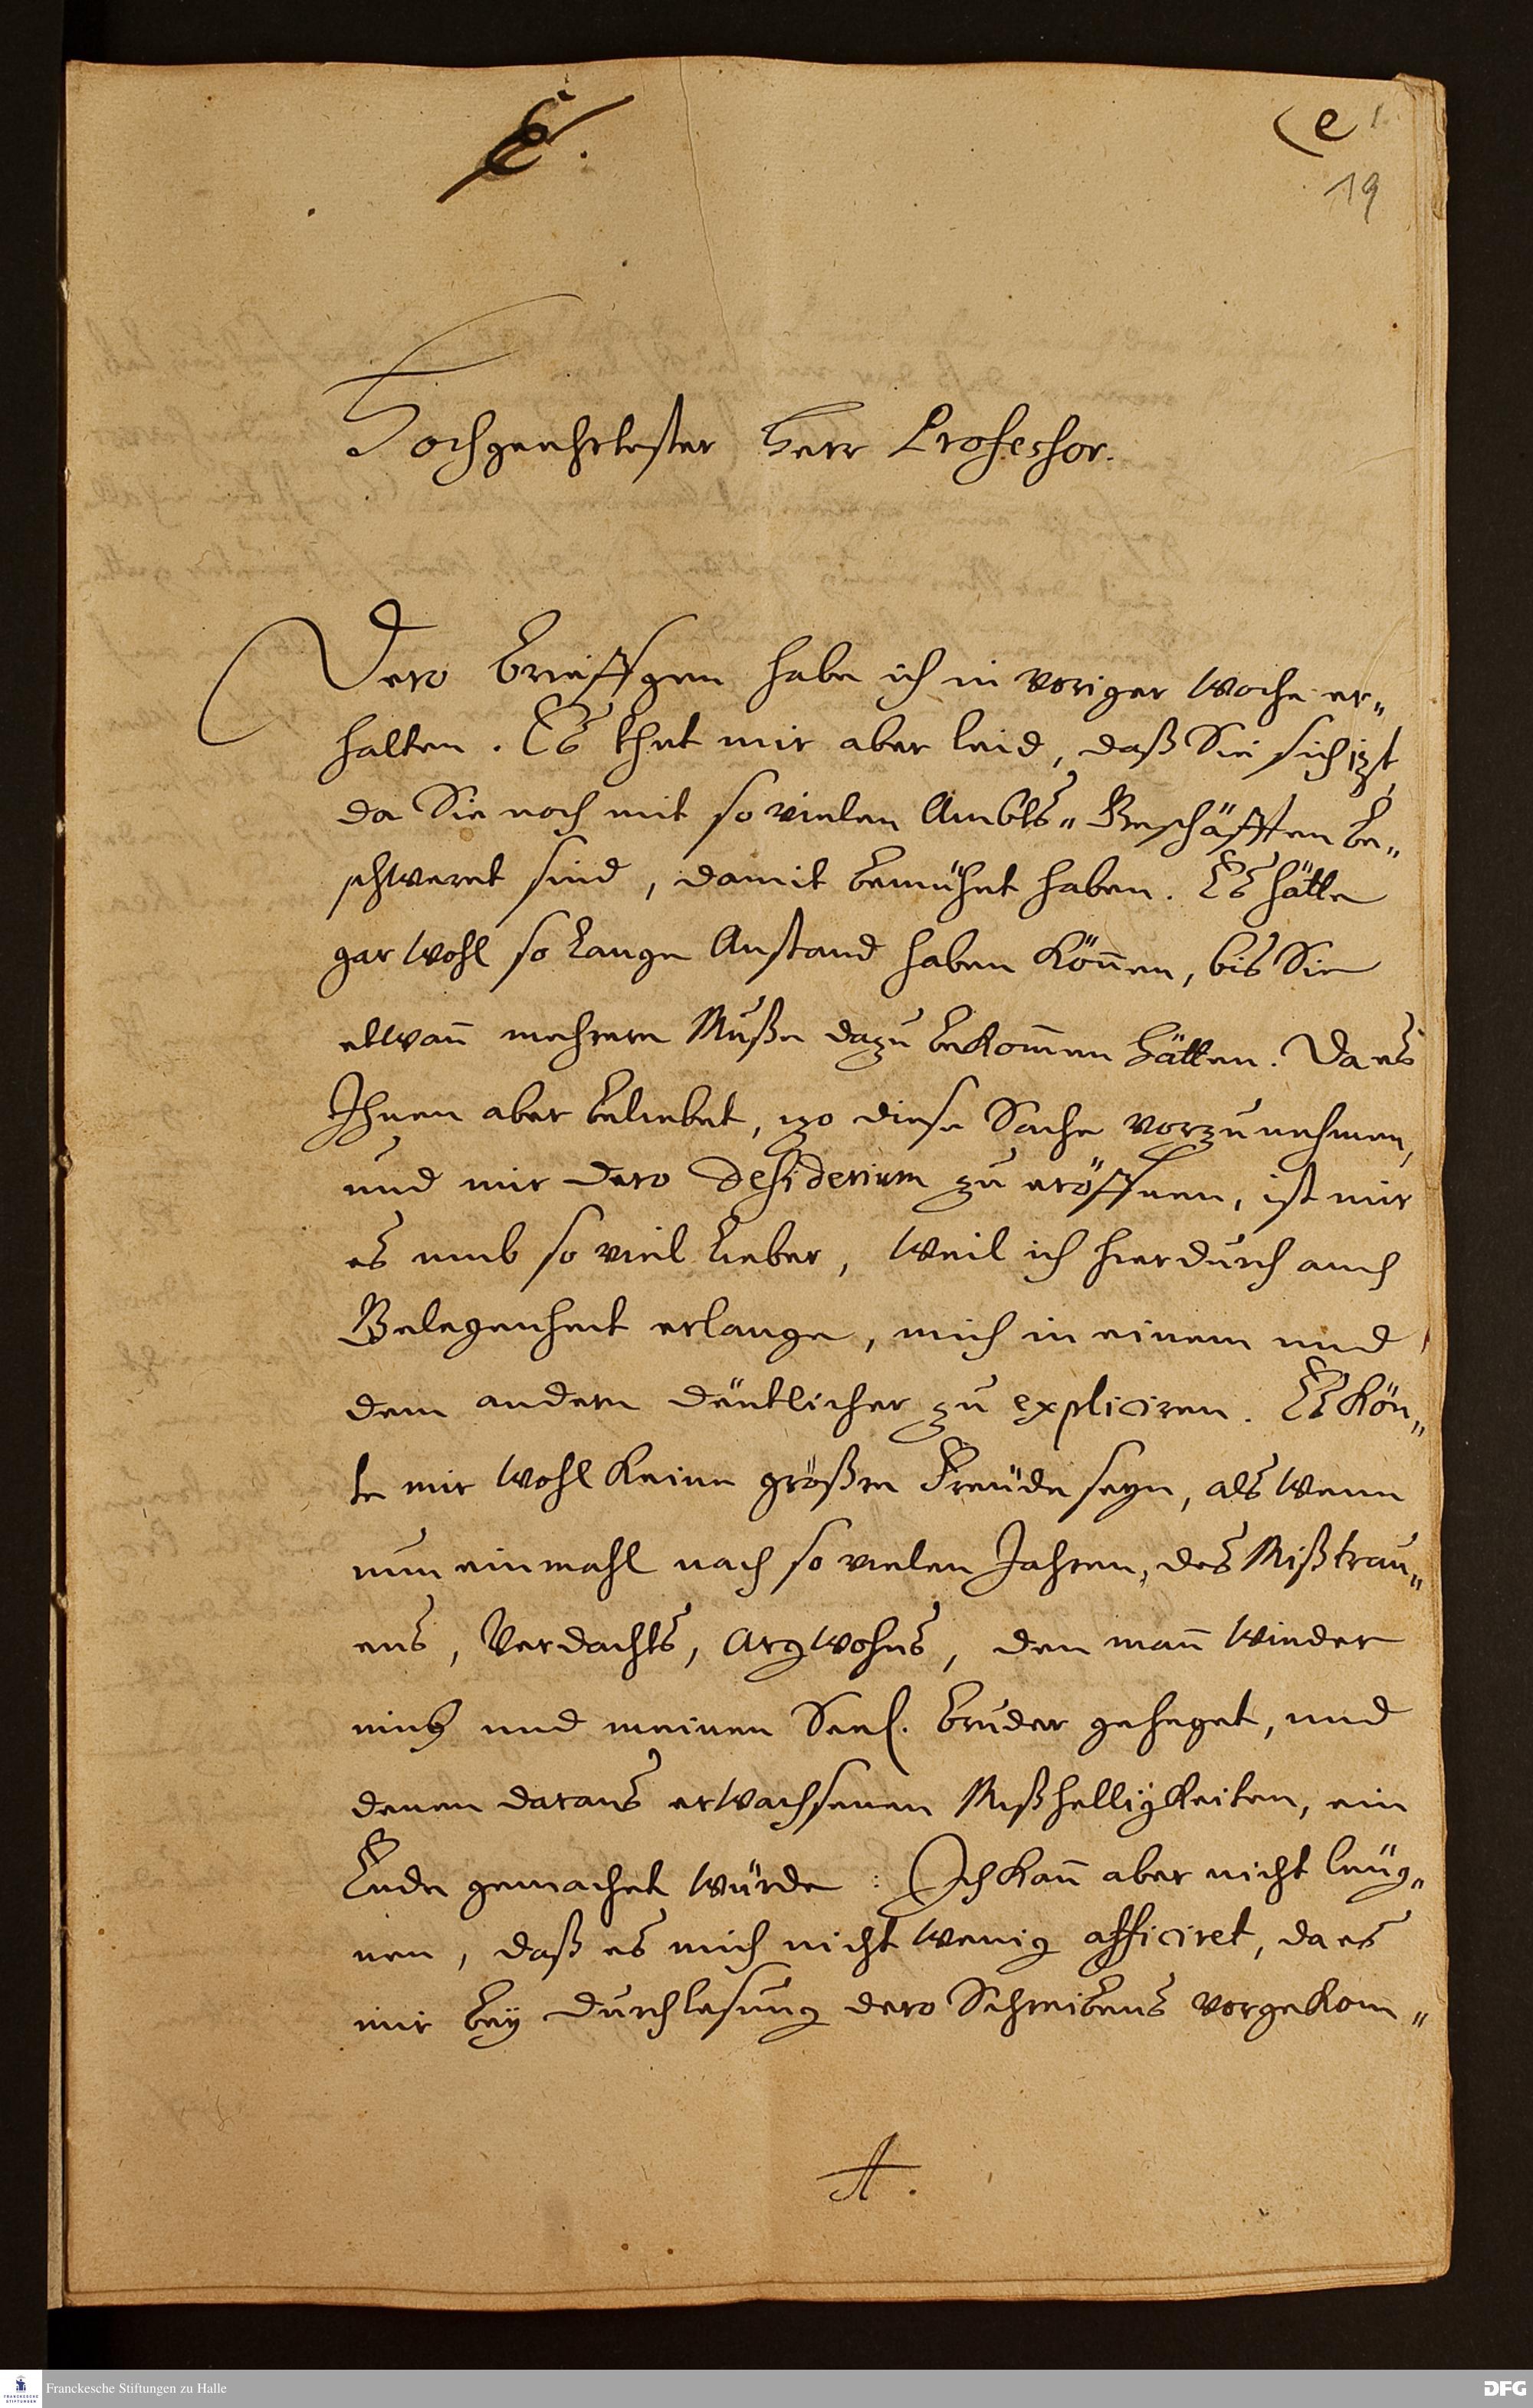 E.
(e 1.
19
Hochgeehrtester Herr Professor.
Dero Brieffgen habe ich in voriger Woche er„
halten. Es thut mir aber leid, daß Sie sich izt,
da Sie noch mit so vielen Ambts„ Geschäfften be„
schweret sind, damit bemühet haben. Es hätte
gar wohl so lange Anstand haben können, bis Sie
etwan̄ mehrere Muße dazu bekom̄en hätten. Da es
Ihnen aber beliebet, izo diese Sache vorzunehmen,
und mir dero desiderium zu eröffnen, ist mir
es umb so viel lieber, weil ich hierdurch auch
Gelegenheit erlange, mich in einem und
dem andern deütlicher zu expliciren. Es kön„
te mir wohl keine größre Freüde seyn, als wenn
nun einmahl nach so vielen Jahren, des Mißtrau„
ens, Verdachts, Argwohns, den man̄ wieder
mich und meinen Seel. Bruder geheget, und
denen daraus erwachsenen Mißhelligkeiten, ein
Ende gemachet würde: Ich kan̄ aber nicht leüg„
nen, daß es mich nicht wenig afficiret, da es
mir bey durchlesung dero Schreibens vorgekom„
A.
Franckesche Stiftungen zu Halle
DFG